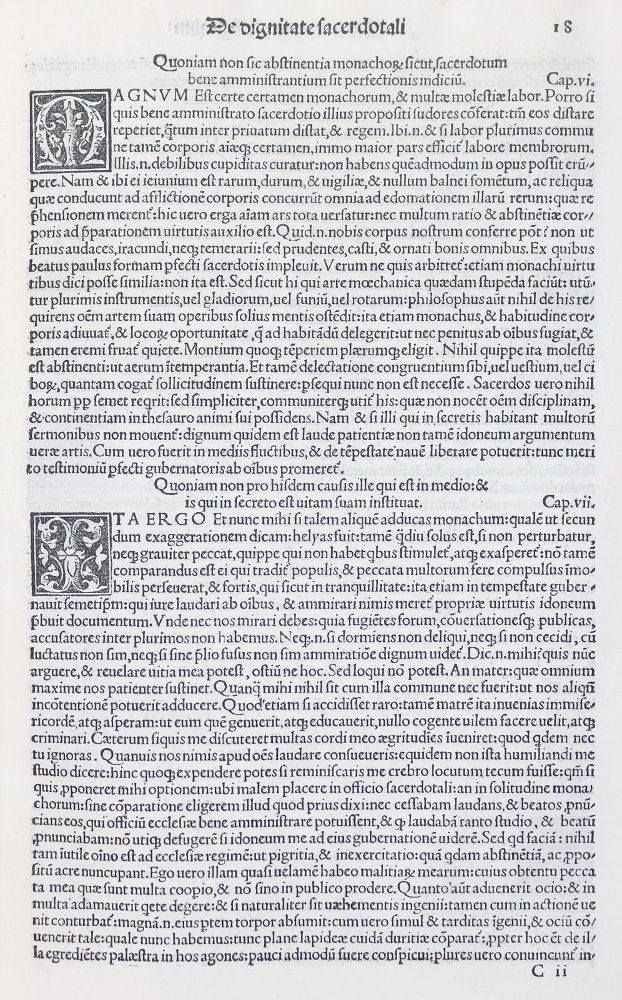 De dignitate sacerdotali 18
Quoniam non sic abstinentia monachoꝝ sicut, sacerdotum
bene amministrantium sit perfectionis indiciū. Cap.vi.
MAGNVM Est certe certamen monachorum,& multæ molestiæ labor. Porro si
quis bene amministrato sacerdotio illius propositi sudores cōferat: tm̄ eos distare
repetiet, q̄tum inter priuatum distat,& regem. Ibi.n.& si labor plurimus commu
ne tamē corporis, aiæq; certamen, immo maior pars efficit᷑ labore membrorum.
Illis.n. debilibus cupiditas curatur: non habens quēadmodum in opus possit erū-
pere. Nam & ibi ei ieiunium est rarum, durum,& uigiliæ,& nullum balnei fomētum, ac reliqua
quæ conducunt ad afflictionē corporis concurrūt omnia ad edomationem illarū rerum: quæ re
p̄hensionem merent᷑: hic uero erga aīam ars tota uersatur: nec multum ratio & abstinētiæ cor-
poris ad p̄parationem uirtutis auxilio est. Quid.n. nobis corpus nostrum conferre pōt? non ut
simus audaces, iracundi, neq; temerarii: sed prudentes, casti,& ornati bonis omnibus. Ex quibus
beatus paulus formam pfecti sacerdotis impleuit. Verum ne quis arbitret᷑: etiam monachi uirtu
tibus dici posse similia: non ita est. Sed sicut hi qui arte mœchanica quædam stupēda faciūt: utū-
tur plurimis instrumentis, uel gladiorum, uel funiū, uel rotarum: philosophus aūt nihil de his re-
quirens oēm artem suam operibus solius mentis ostēdit: ita etiam monachus,& habitudine cor-
poris adiuuat᷑,& locoꝝ oportunitate, q̄ ad habitādū delegerit: ut nec penitus ab oībus fugiat,&
tamen eremi fruat᷑ quiete. Montium quoq; tēperiem plærumq; eligit. Nihil quippe ita molestū
est abstinenti: ut aerum ītemperantia. Et tamē delectatione congruentium sibi, uel uestium, uel ci
boꝝ, quantam cogat᷑ sollicitudinem sustinere: psequi nunc non est necesse. Sacerdos uero nihil
horum pp semet reqrit: sed simpliciter, communiterq; utit᷑ his: quæ non nocēt oēm disciplinam,
& continentiam in thesauro animi sui possidens. Nam & si illi qui in secretis habitant multorū
sermonibus non mouent᷑: dignum quidem est laude patientiæ non tamē idoneum argumentum
ueræ artis. Cum uero fuerit in mediis fluctibus,& de tēpestate nauē liberare potuerit: tunc meri
to testimoniū pfecti gubernatoris ab oībus promeret᷑.
Quoniam non pro hisdem causis ille qui est in medio: &
is qui in secreto est uitam suam instituat. Cap.vii.
ITA ERGO Et nunc mihi si talem aliquē adducas monachum: qualē ut secun
dum exaggerationem dicam: helyas fuit: tamē q̄diu solus est, si non perturbatur,
neq; grauiter peccat, quippe qui non habet qbus stimulet᷑, atq; exasperet᷑: nō tamē
comparandus est ei qui tradit᷑ populis,& peccata multorum fere compulsus īmo-
bilis perseuerat,& fortis, qui sicut in tranquillitate: ita etiam in tempestate guber-
nauit semetipm: qui iure laudari ab oībus,& ammirari nimis meret᷑ propriæ uirtutis idoneum
p̄buit documentum. Vnde nec nos mirari debes: quia fugiētes forum, cōuersationesq; publicas,
accusatores inter plurimos non habemus. Neq;.n. si dormiens non deliqui, neq; si non cecidi, cū
luctatus non sim, neq; si sine plio fusus non sim ammiratiōe dignum uidet᷑. Dic.n. mihi: quis nūc
arguere,& reuelare uitia mea potest, ostiū ne hoc. Sed loqui nō potest. An mater: quæ omnium
maxime nos patienter sustinet. Quanq̄ mihi nihil sit cum illa commune nec fuerit: ut nos aliqn̄
incōtentionē potuerit adducere. Quod etiam si accidisset raro: tamē matrē ita inuenias immise-
ricordē, atq; asperam: ut eum quē genuerit, atq; educauerit, nullo cogente uilem facere uelit, atq;
criminari. Cæterum siquis me discuteret multas cordi meo ægritudies īueniret: quod qdem nec
tu ignoras. Quanuis nos nimis apud oēs laudare consueueris: equidem non ista humiliandi me
studio dicere: hinc quoq; expendere potes si reminiscaris me crebro locutum tecum fuisse: qm̄ si
quis proponeret mihi optionem: ubi malem placere in officio sacerdotali: an in solitudine mona-
chorum: sine cōparatione eligerem illud quod prius dixi: nec cessabam laudans,& beatos pnū-
cians eos, qui officiū ecclesiæ bene amministrare potuissent,& q laudabā tanto studio,& beatū
pnunciabam: nō utiq; defugerē si idoneum me ad eius gubernationē uiderē. Sed qd faciā: nihil
tam īutile oīno est ad ecclesiæ regimē: ut pigritia,& inexercitatio: quā qdam abstinētiā, ac ppo-
sitū acre nuncupant. Ego uero illam quasi uelamē habeo malitiæ mearum: cuius obtentu pecca
ta mea quæ sunt multa coopio,& nō sino in publico prodere. Quanto aūt aduenerit ocio: & in
multa adamauerit qete degere:& si naturaliter sit uæhementis ingenii: tamen cum in actionē ue
nit conturbat᷑: magnā.n. eius ptem torpor absumit: cum uero simul & tarditas īgenii,& ociū cō-
uenerit tale: quale nunc habemus: tunc plane lapideæ cuidā duritiæ cōparat᷑: ppter hoc et de il-
la egrediētes palæstra in hos agones: pauci admodū fuere conspicui: plures uero conuincunt᷑ in-
C ii